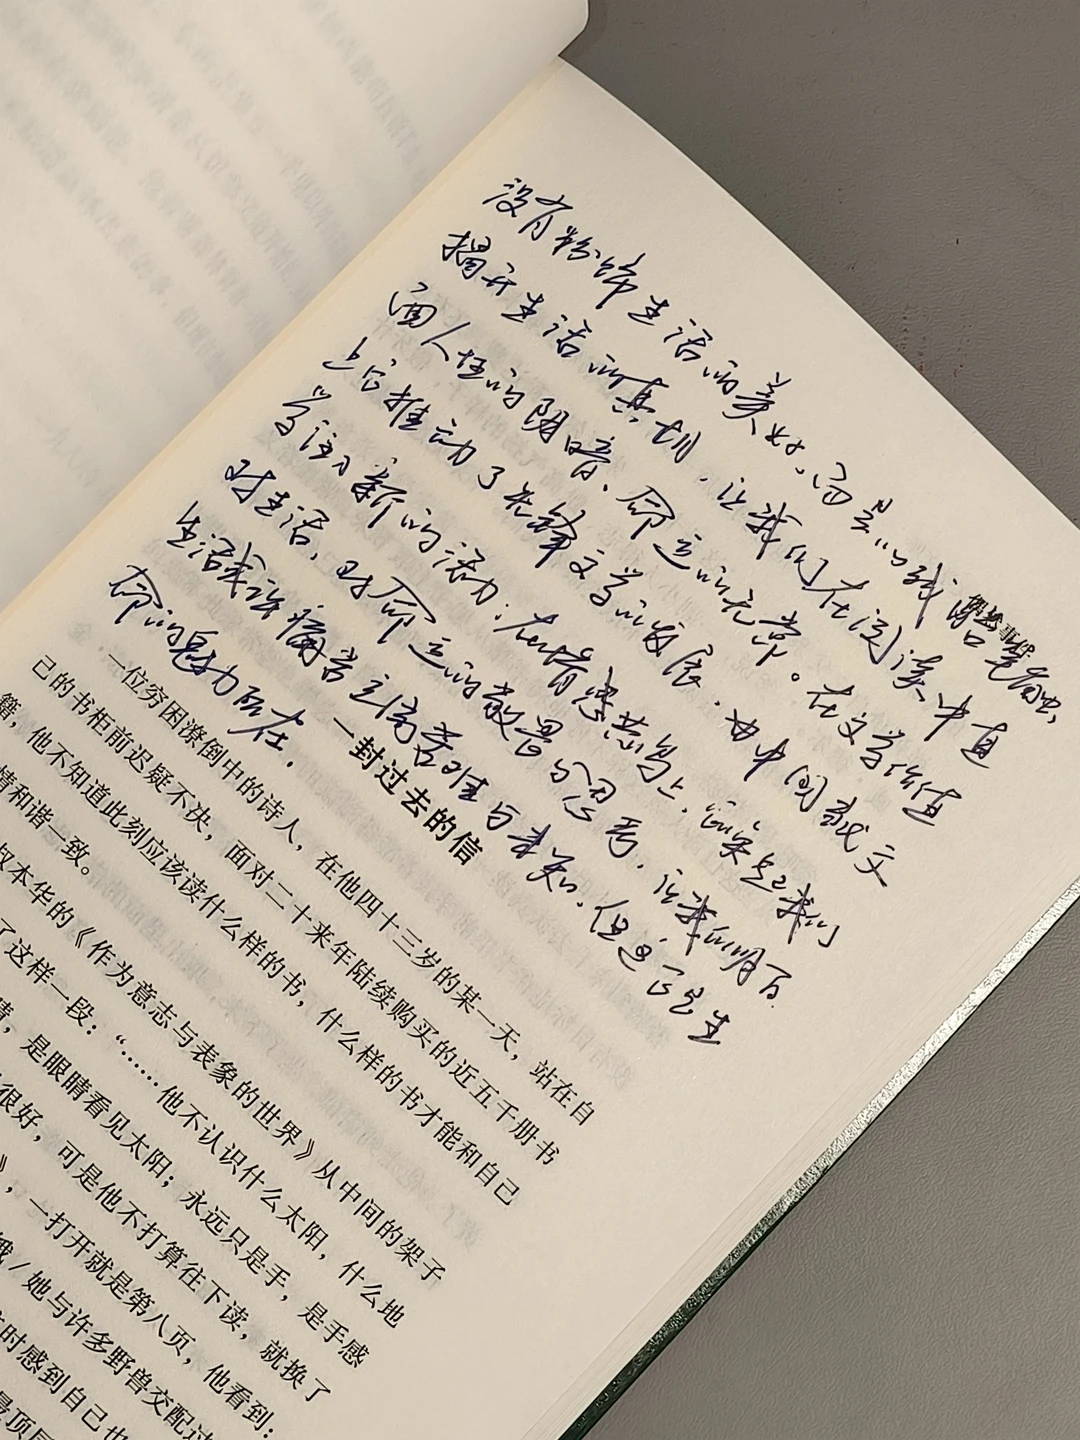 没有粉饰生活的美好、而是以残酷笔触,
揭开生活的真切,让我们在阅读中直
面人性的阴暗、命运的无常。在文学价值
上它推动了先锋文学的发展,由中国文
学注入新的活力;在情感共鸣上,引起我们
对生活、对命运的敬畏与思考,让我们明白
生活或许痛苦充满苦难与未知,但这正是生
命的魅力所在.
一封过去的信
一位穷困潦倒中的诗人,在他四十三岁的某一天,站在自
己的书柜前迟疑不决,面对二十来年陆续购买的近五千册书
籍,他不知道此刻应该读什么样的书,什么样的书才能和自己
情和谐一致。
叔本华的《作为意志与表象的世界》从中间的架子
了这样一段:“……他不认识什么太阳,什么地
睛,是眼睛看见太阳;永远只是手,是手感
很好,可是他不打算往下读,就换了
》,一打开就是第八页,他看到:
娥/她与许多野兽交配过
时感到自己也